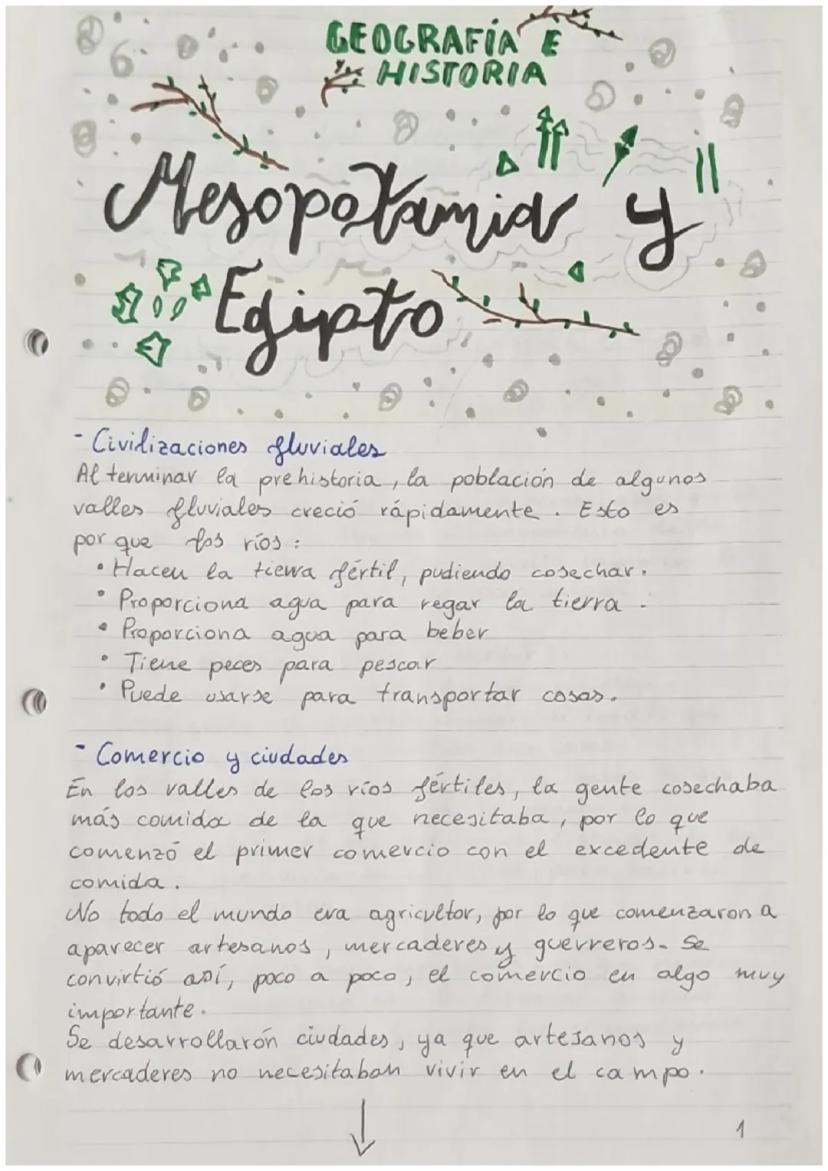 GEOGRAFÍA E
HISTORIA
Mesopotamia y
Egipto
- Civilizaciones fluviales
Al terminar la prehistoria, la población de algunos
valles fluviales creció rápidamente. Esto es
por que los ríos:
• Hacen la tierra fértil, pudiendo cosechar.
• Proporciona agua para regar la tierra.
• Proporciona agua para beber
• Tiene peces para pescar
• Puede usarse para transportar cosas.
- Comercio y ciudades
En los valles de los ríos fértiles, la gente cosechaba
más comida de la que necesitaba, por lo que
comenzó el primer comercio con el excedente de
comida.
No todo el mundo era agricultor, por lo que comenzaron a
aparecer artesanos, mercaderes y guerreros. Se
convirtió así, poco a poco, el comercio en algo muy
importante.
Se desarrollarón ciudades, ya que artesanos y
mercaderes no necesitaban vivir en el campo.
1